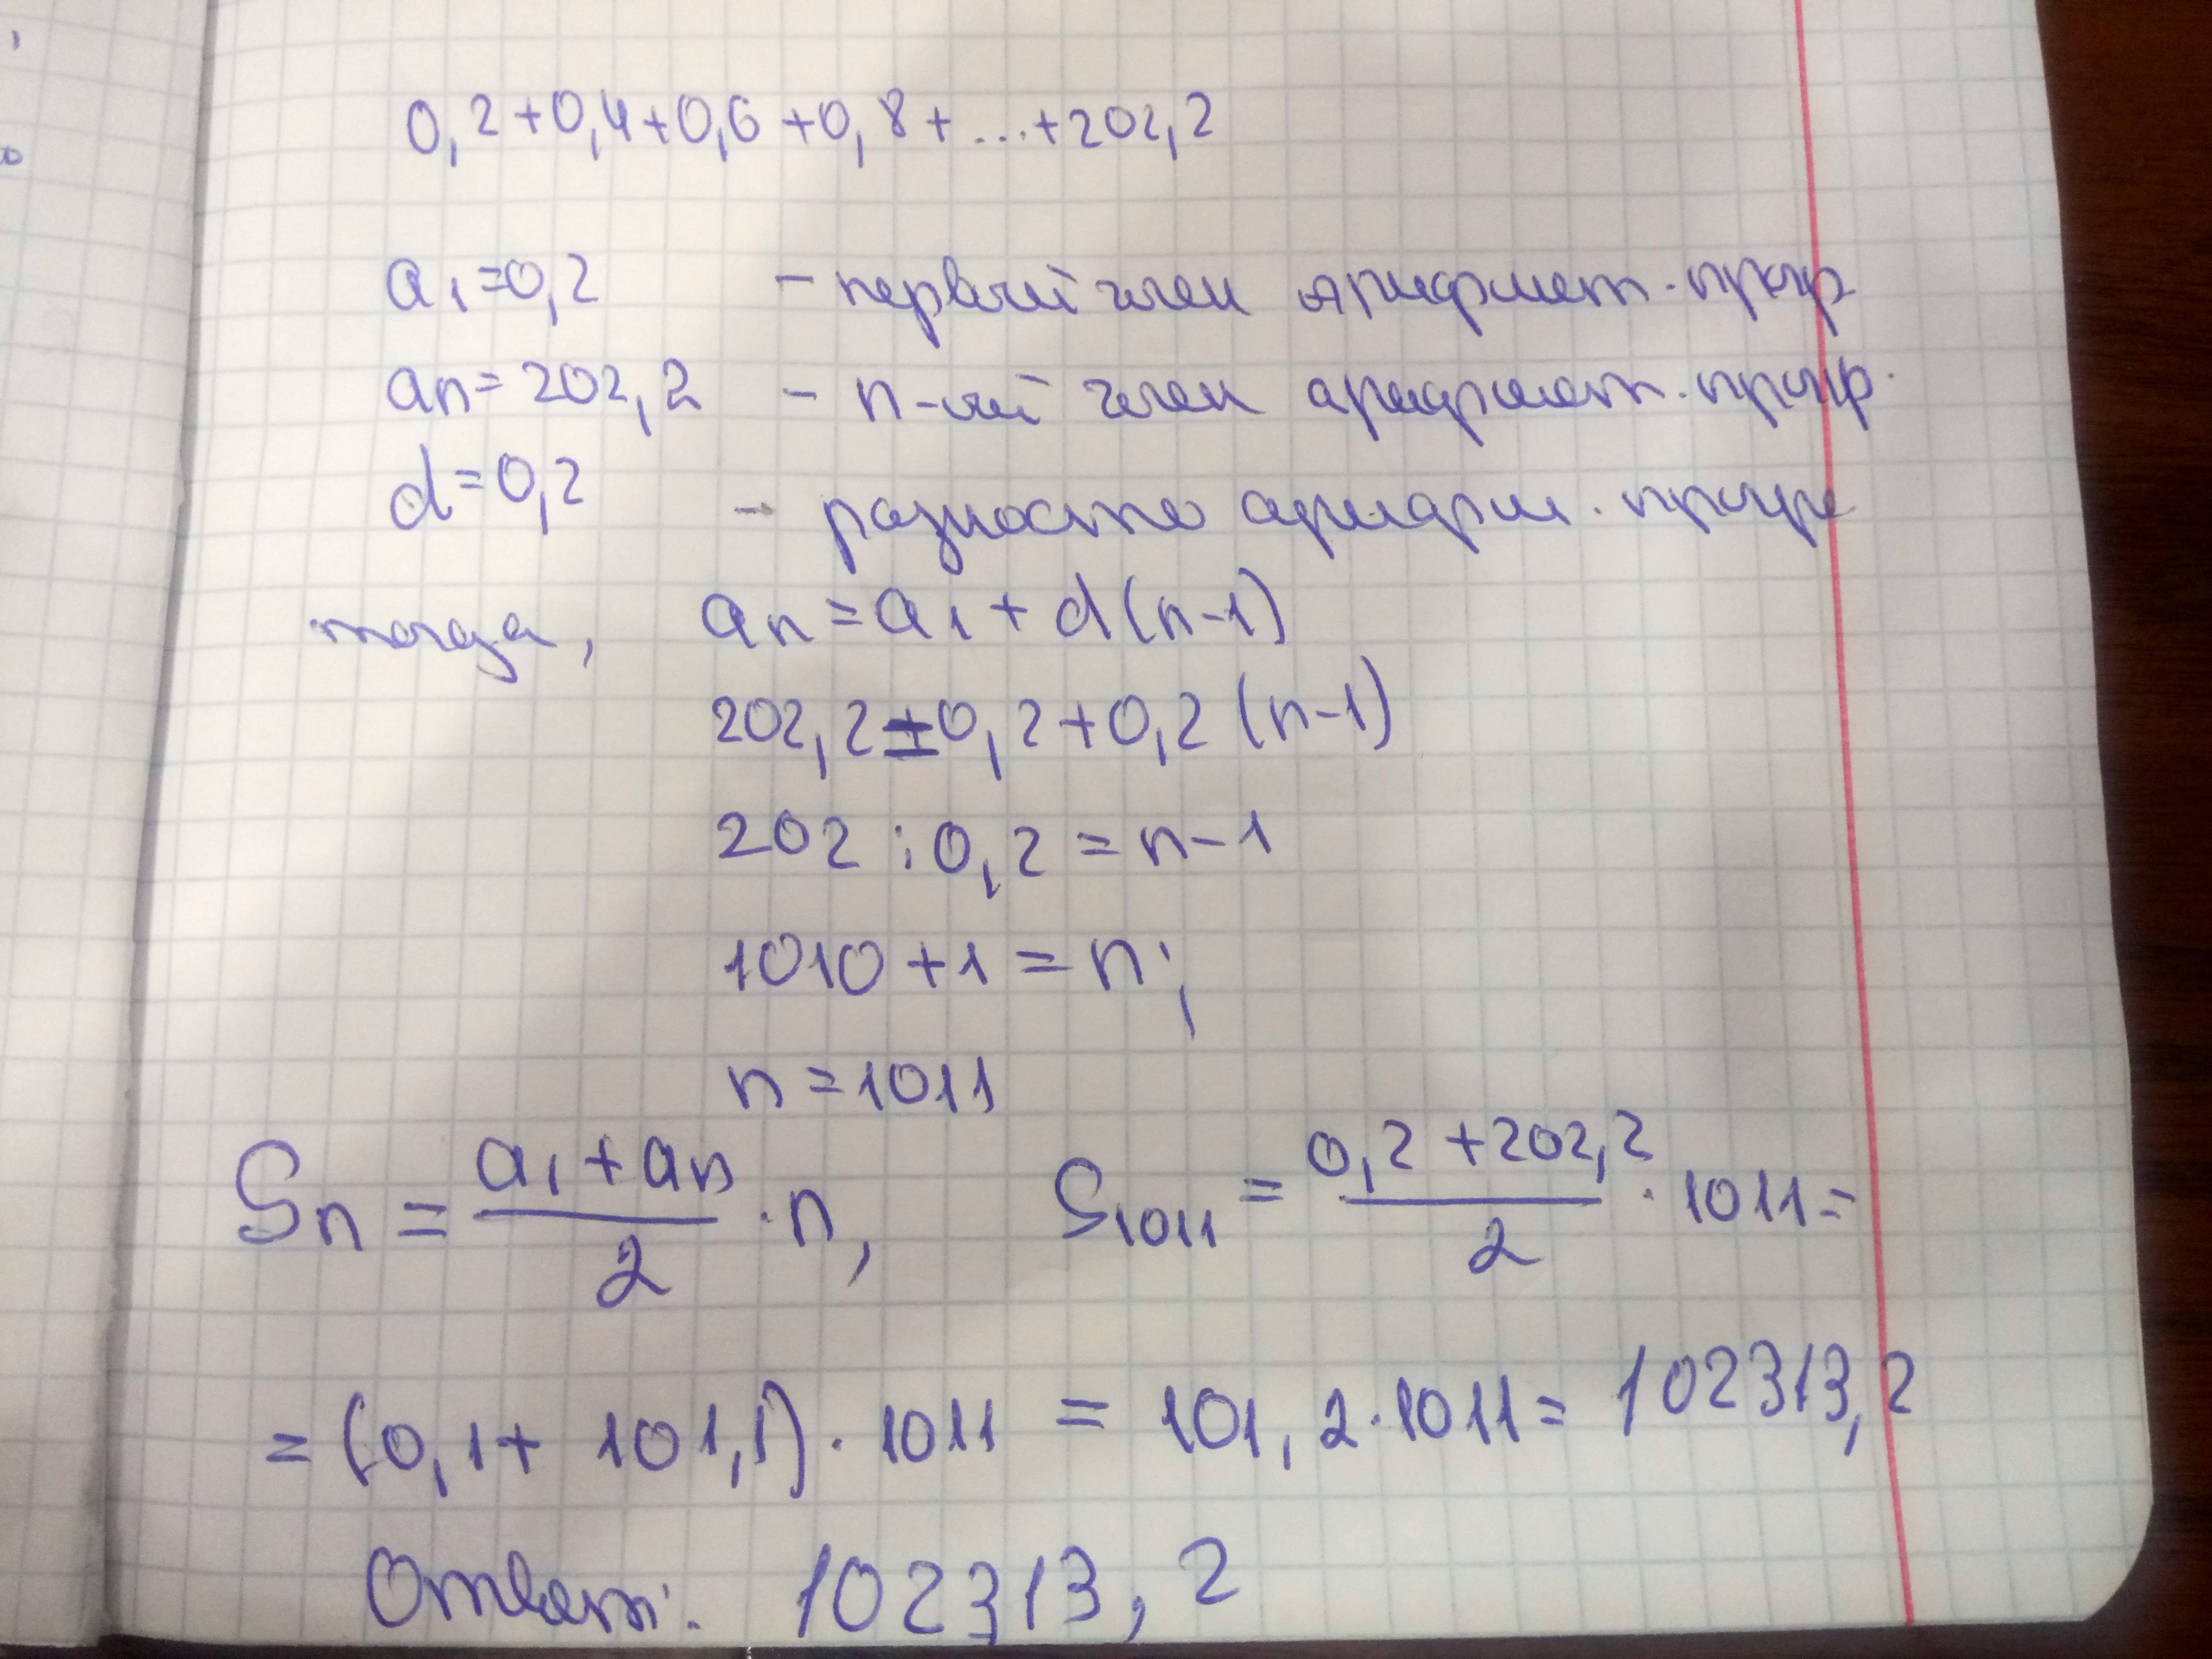 0,2+0,4+0,6+0,8+...+202,2
a₁=0,2 - первый член арифмет. прогр
aₙ=202,2 - n-ый член арифмет. прогр.
d=0,2 - разность арифм. прогре
тогда, aₙ=a₁+d(n-1)
202,2=0,2+0,2(n-1)
202:0,2=n-1
1010+1=n;
n=1011
Sₙ = (a₁+aₙ)/2 · n, S₁₀₁₁ = (0,2+202,2)/2 · 1011=
=(0,1+101,1)·1011 = 101,2·1011= 102313,2
Ответ: 102313,2